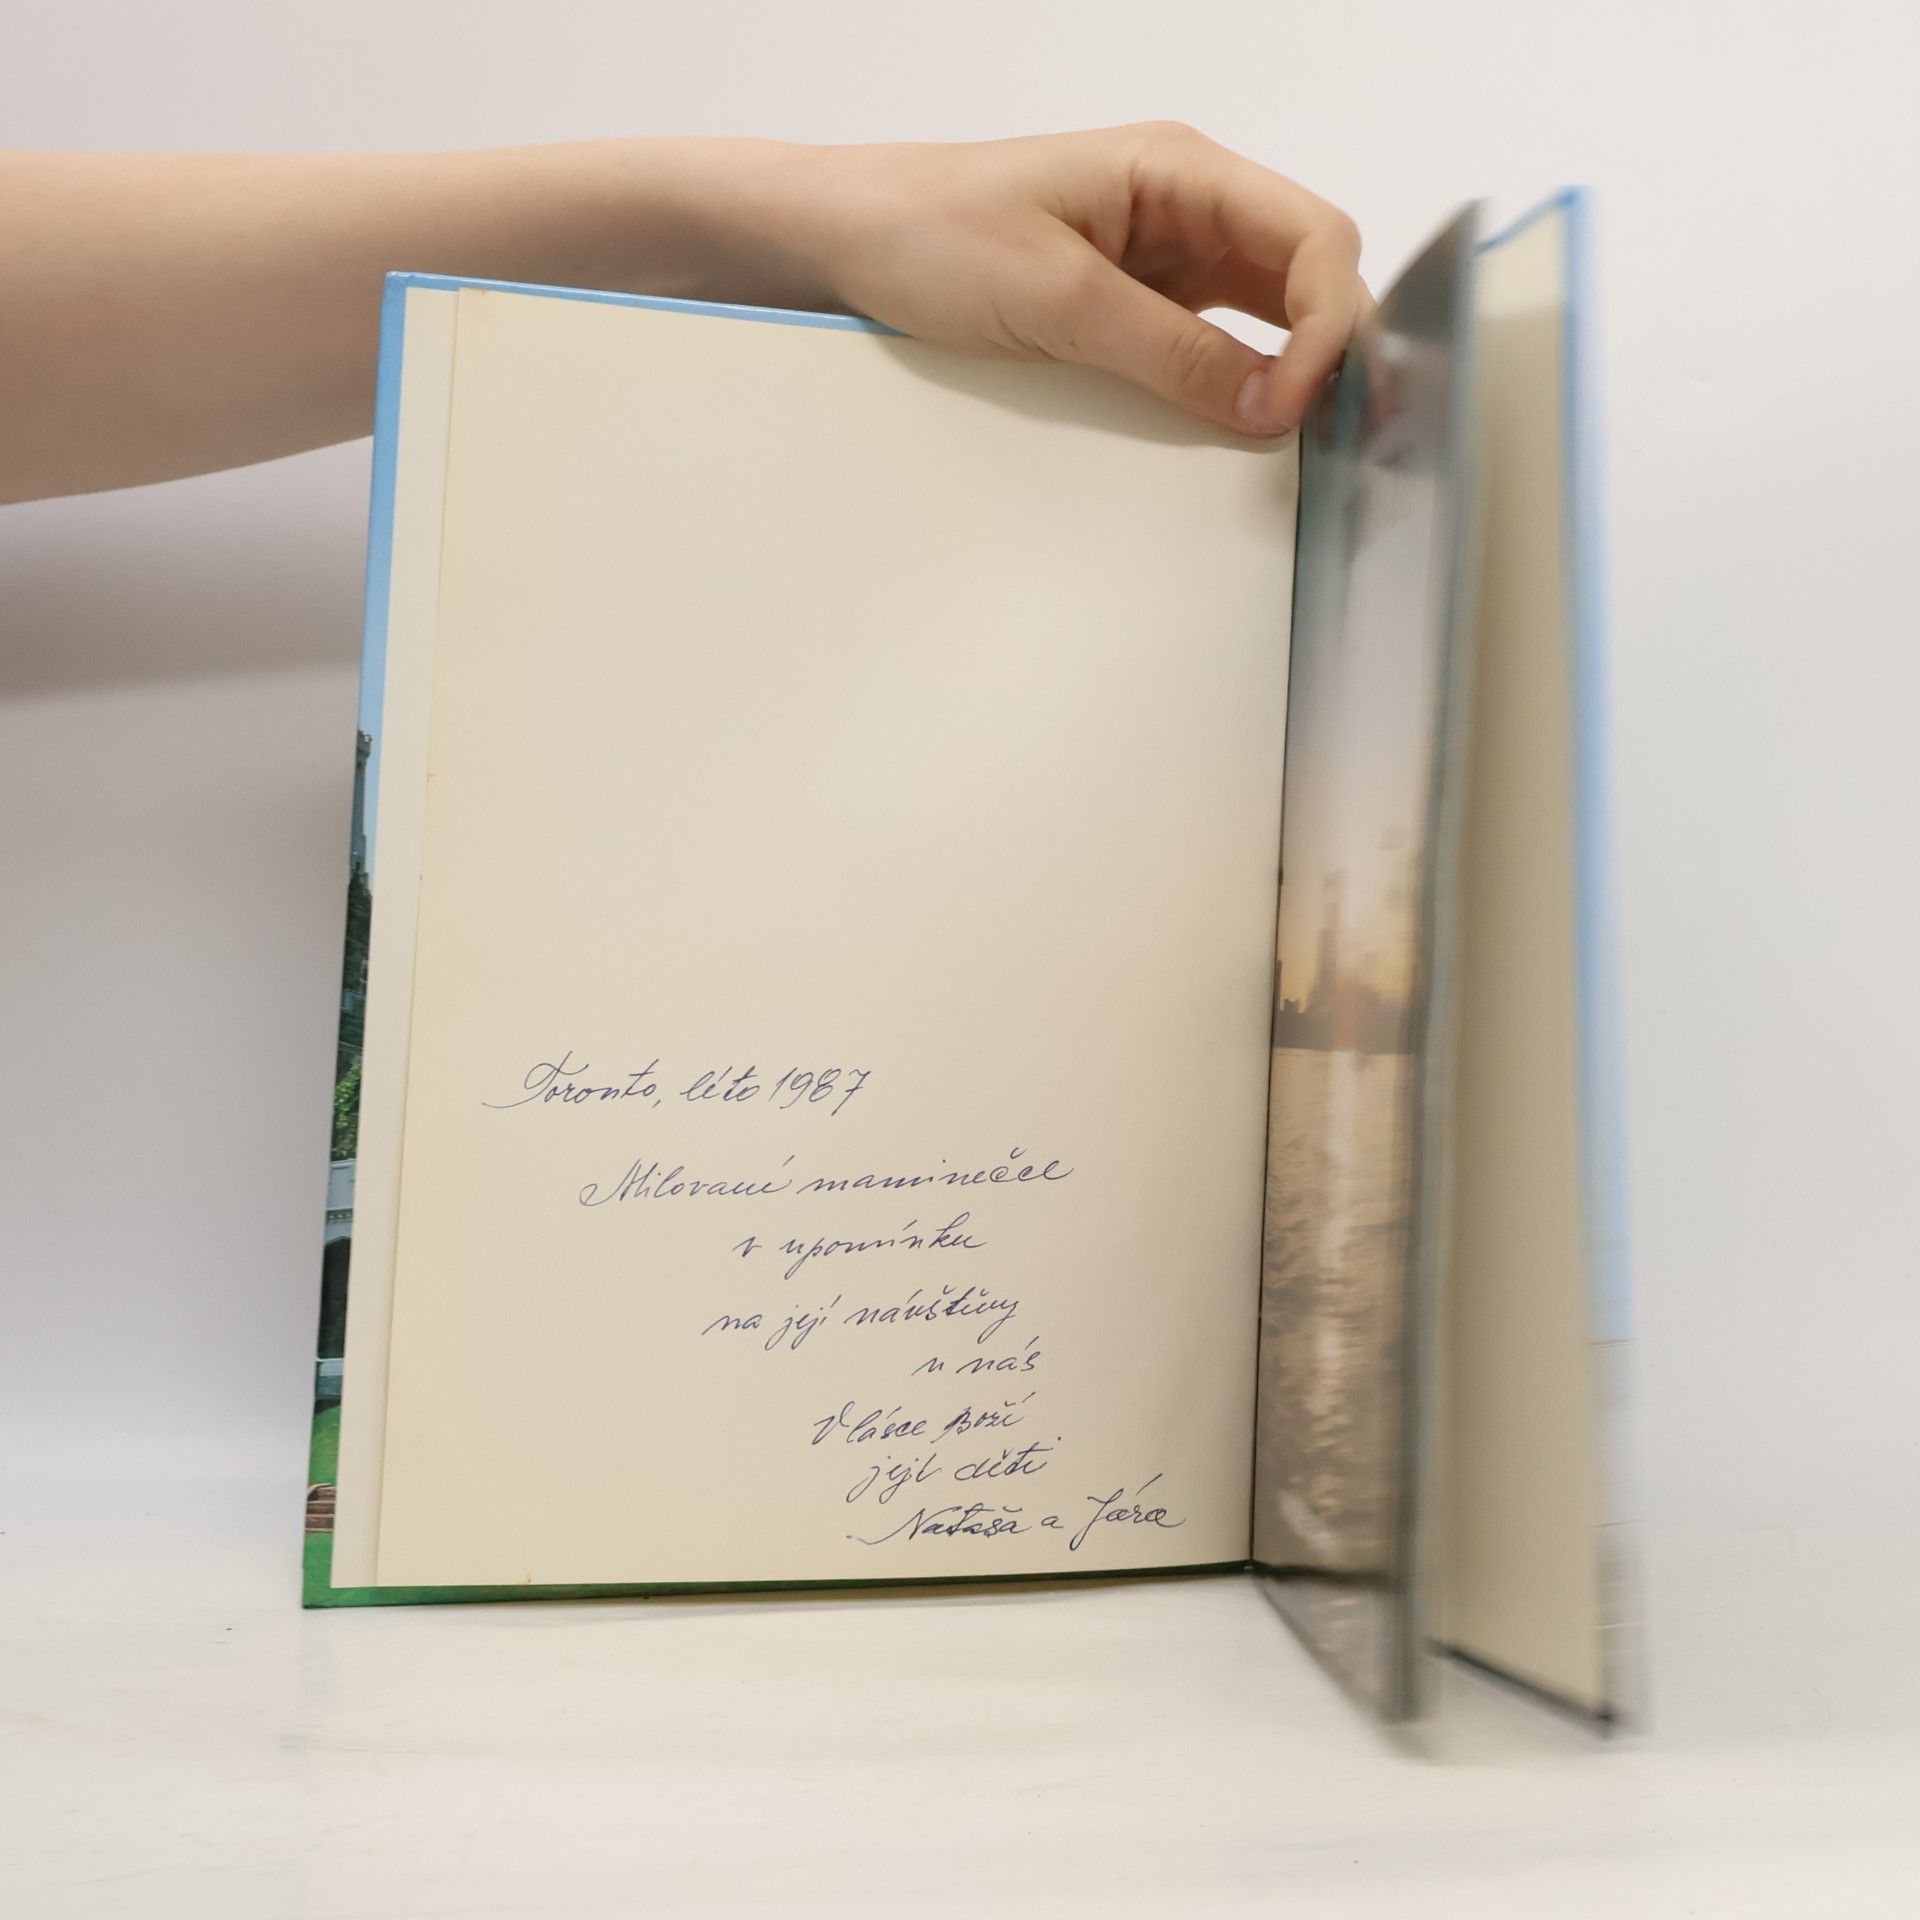 Toronto, léto 1987
Milované maminečce
v upomínku
na její návštěvy
u nás
V lásce Boží
její děti
Nataša a Jára